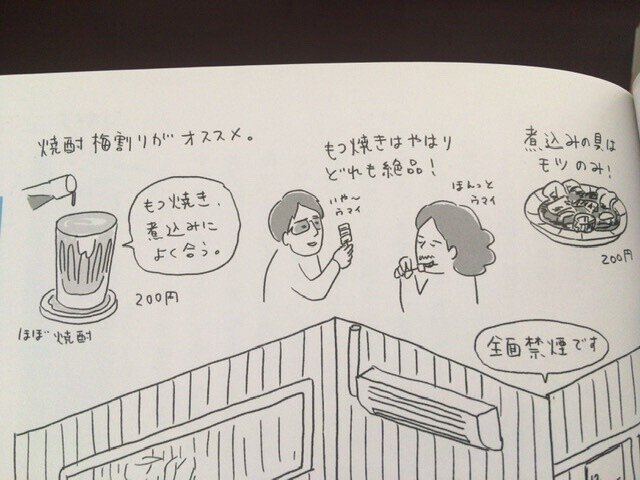 焼酎梅割りがオススメ。
もつ焼き、
煮込みに
よく合う。
200円
ほぼ焼酎
もつ焼きはやはり
どれも絶品!
いや〜
ウマイ
ほんっと
ウマイ
煮込みの具は
モツのみ!
200円
全面禁煙です